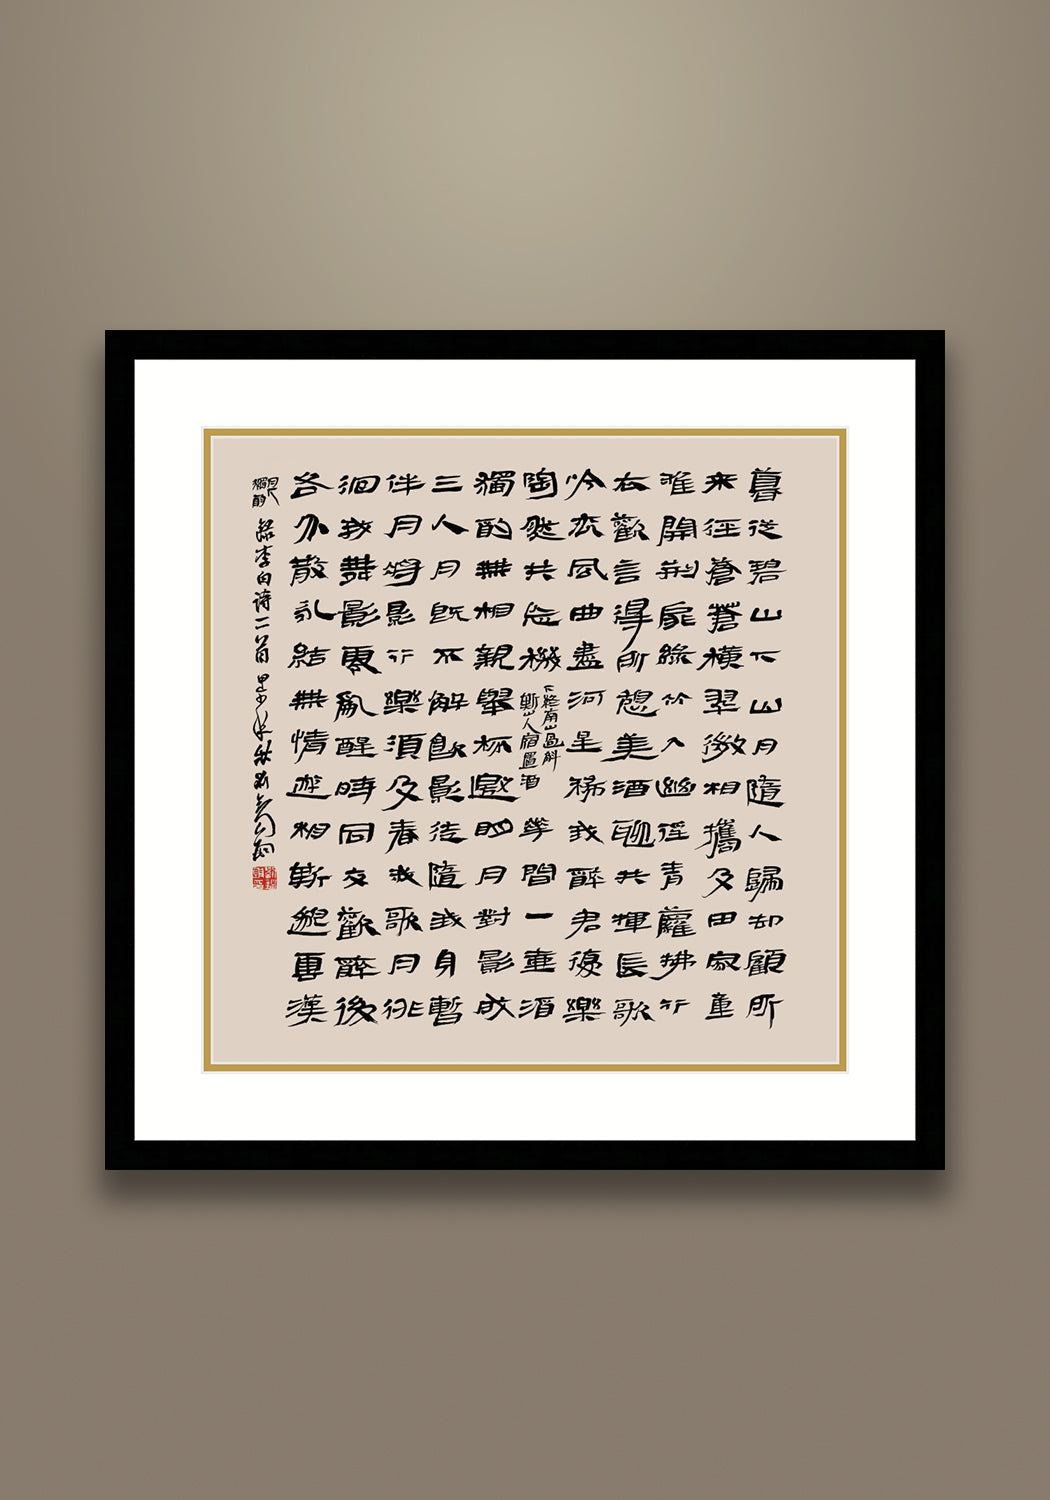 暮從碧山下山月隨人歸却顧所
来徑蒼蒼橫翠微相攜及田家童
稚開荊扉綠竹入幽徑青蘿拂行
衣歡言得所憩美酒聊共揮長歌
吟松風曲盡河星稀我醉君復樂
陶然共忘機
下終南山過斛
斯山人宿置酒
華間一壺酒
獨酌無相親舉杯邀明月對影成
三人月既不解飲影徒隨我身暫
伴月將影行樂須及春我歌月徘
徊我舞影零亂醒時同交歡醉後
各分散永結無情遊相期邈雲漢
月下獨酌
錄李白诗二首